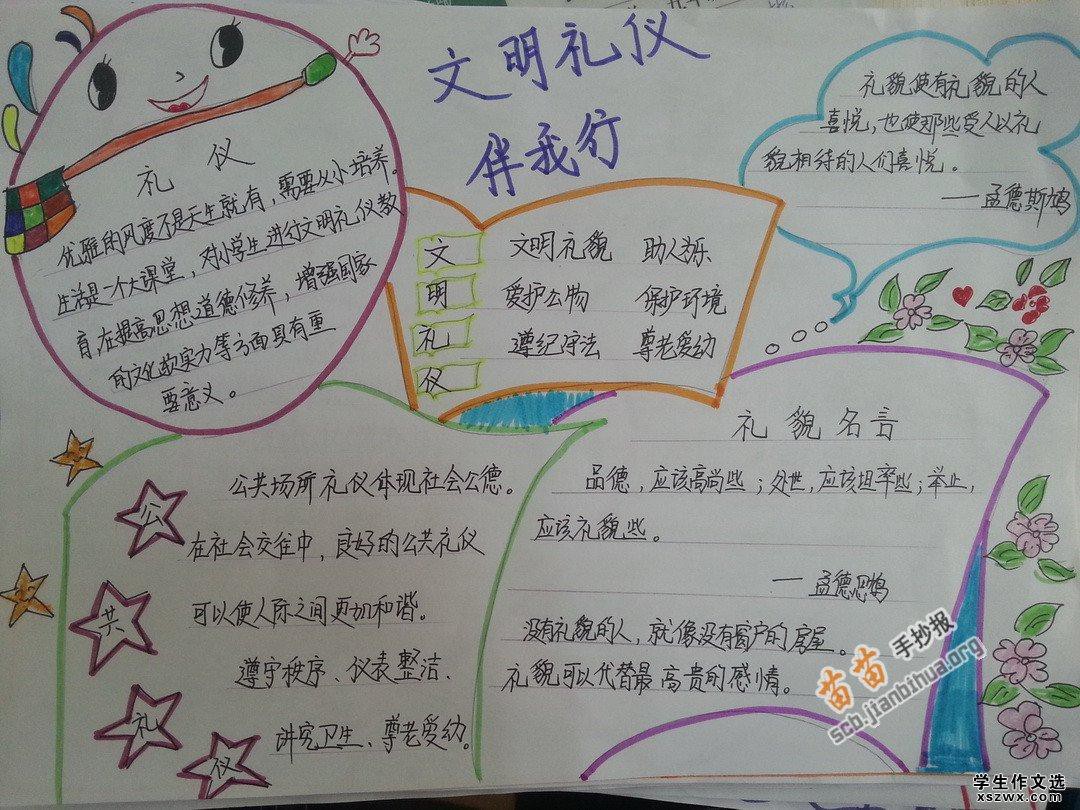 文明礼仪
伴我行
礼仪
优雅的风度不是天生就有，需要从小培养。
生活是一个大课堂，对小学生进行文明礼仪教
育，在提高思想道德修养，增强国家
的文化软实力等方面具有重
要意义。
文 文明礼貌 助人为乐
明 爱护公物 保护环境
礼 遵纪守法 尊老爱幼
仪
礼貌使有礼貌的人
喜悦，也使那些受人以礼
貌相待的人们喜悦。
——孟德斯鸠
公共礼仪
公共场所礼仪体现社会公德。
在社会交往中，良好的公共礼仪
可以使人际之间更加和谐。
遵守秩序、仪表整洁、
讲究卫生、尊老爱幼。
礼貌名言
品德，应该高尚些；处世，应该坦率些；举止，
应该礼貌些。
——孟德思鸠
没有礼貌的人，就像没有窗户的房屋。
礼貌可以代替最高贵的感情。
苗苗手抄报
scb.jianbihua.org
学生作文选
xszwx.com